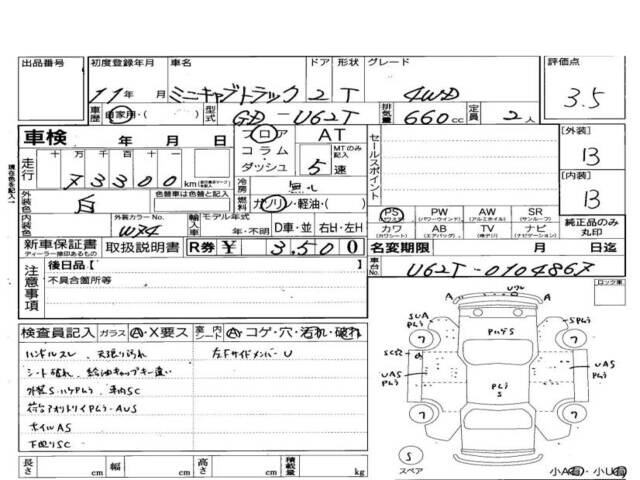 出品番号 初度登録年月 車名 ドア 形状 グレード 評価点
11年 月 ミニキャブトラック 2 T 4WD 3.5
車歴 自家用・( ) 型式 GD-U62T 排気量 660cc 定員 2人
車検 年 月 日 フロア AT セールスポイント [外装]
走行 十 万 千 百 十 一 コラム・ MTのみ記入 13
73300 km ダッシュ 5速
冷房 無し [内装]
外装色 白 色替車は色替と記入 燃料 ガソリン・軽油・( ) 13
PS (パワステ) PW (パワーウインド) AW (アルミホイル) SR (サンルーフ) 純正品のみ丸印
内装色 外装カラーNo. W24 輸入車 モデル年式 年・不明 D車・並 右H・左H カワ (カワシート) AB (エアバッグ) TV (テレビ) ナビ (ナビゲーション)
新車保証書 ディーラー捺印あるもの 取扱説明書 R券 ¥ 3,500 名変期限 月 日迄
注意事項 後日品【 】 車台No. U62T-0104867
不具合箇所等 ロック車
検査員記入 ガラス A・X要ス 室内シート A コゲ・穴・汚れ・破れ
ハンドルスレ、天張り汚れ 左Fサイドメンバー U
シート破れ、給油キャップキー違い
ホイルAS
下廻りSC
長さ cm 幅 cm 高さ cm 積載量 kg
A A
S スペア
小A有・小U有
現在色を記入